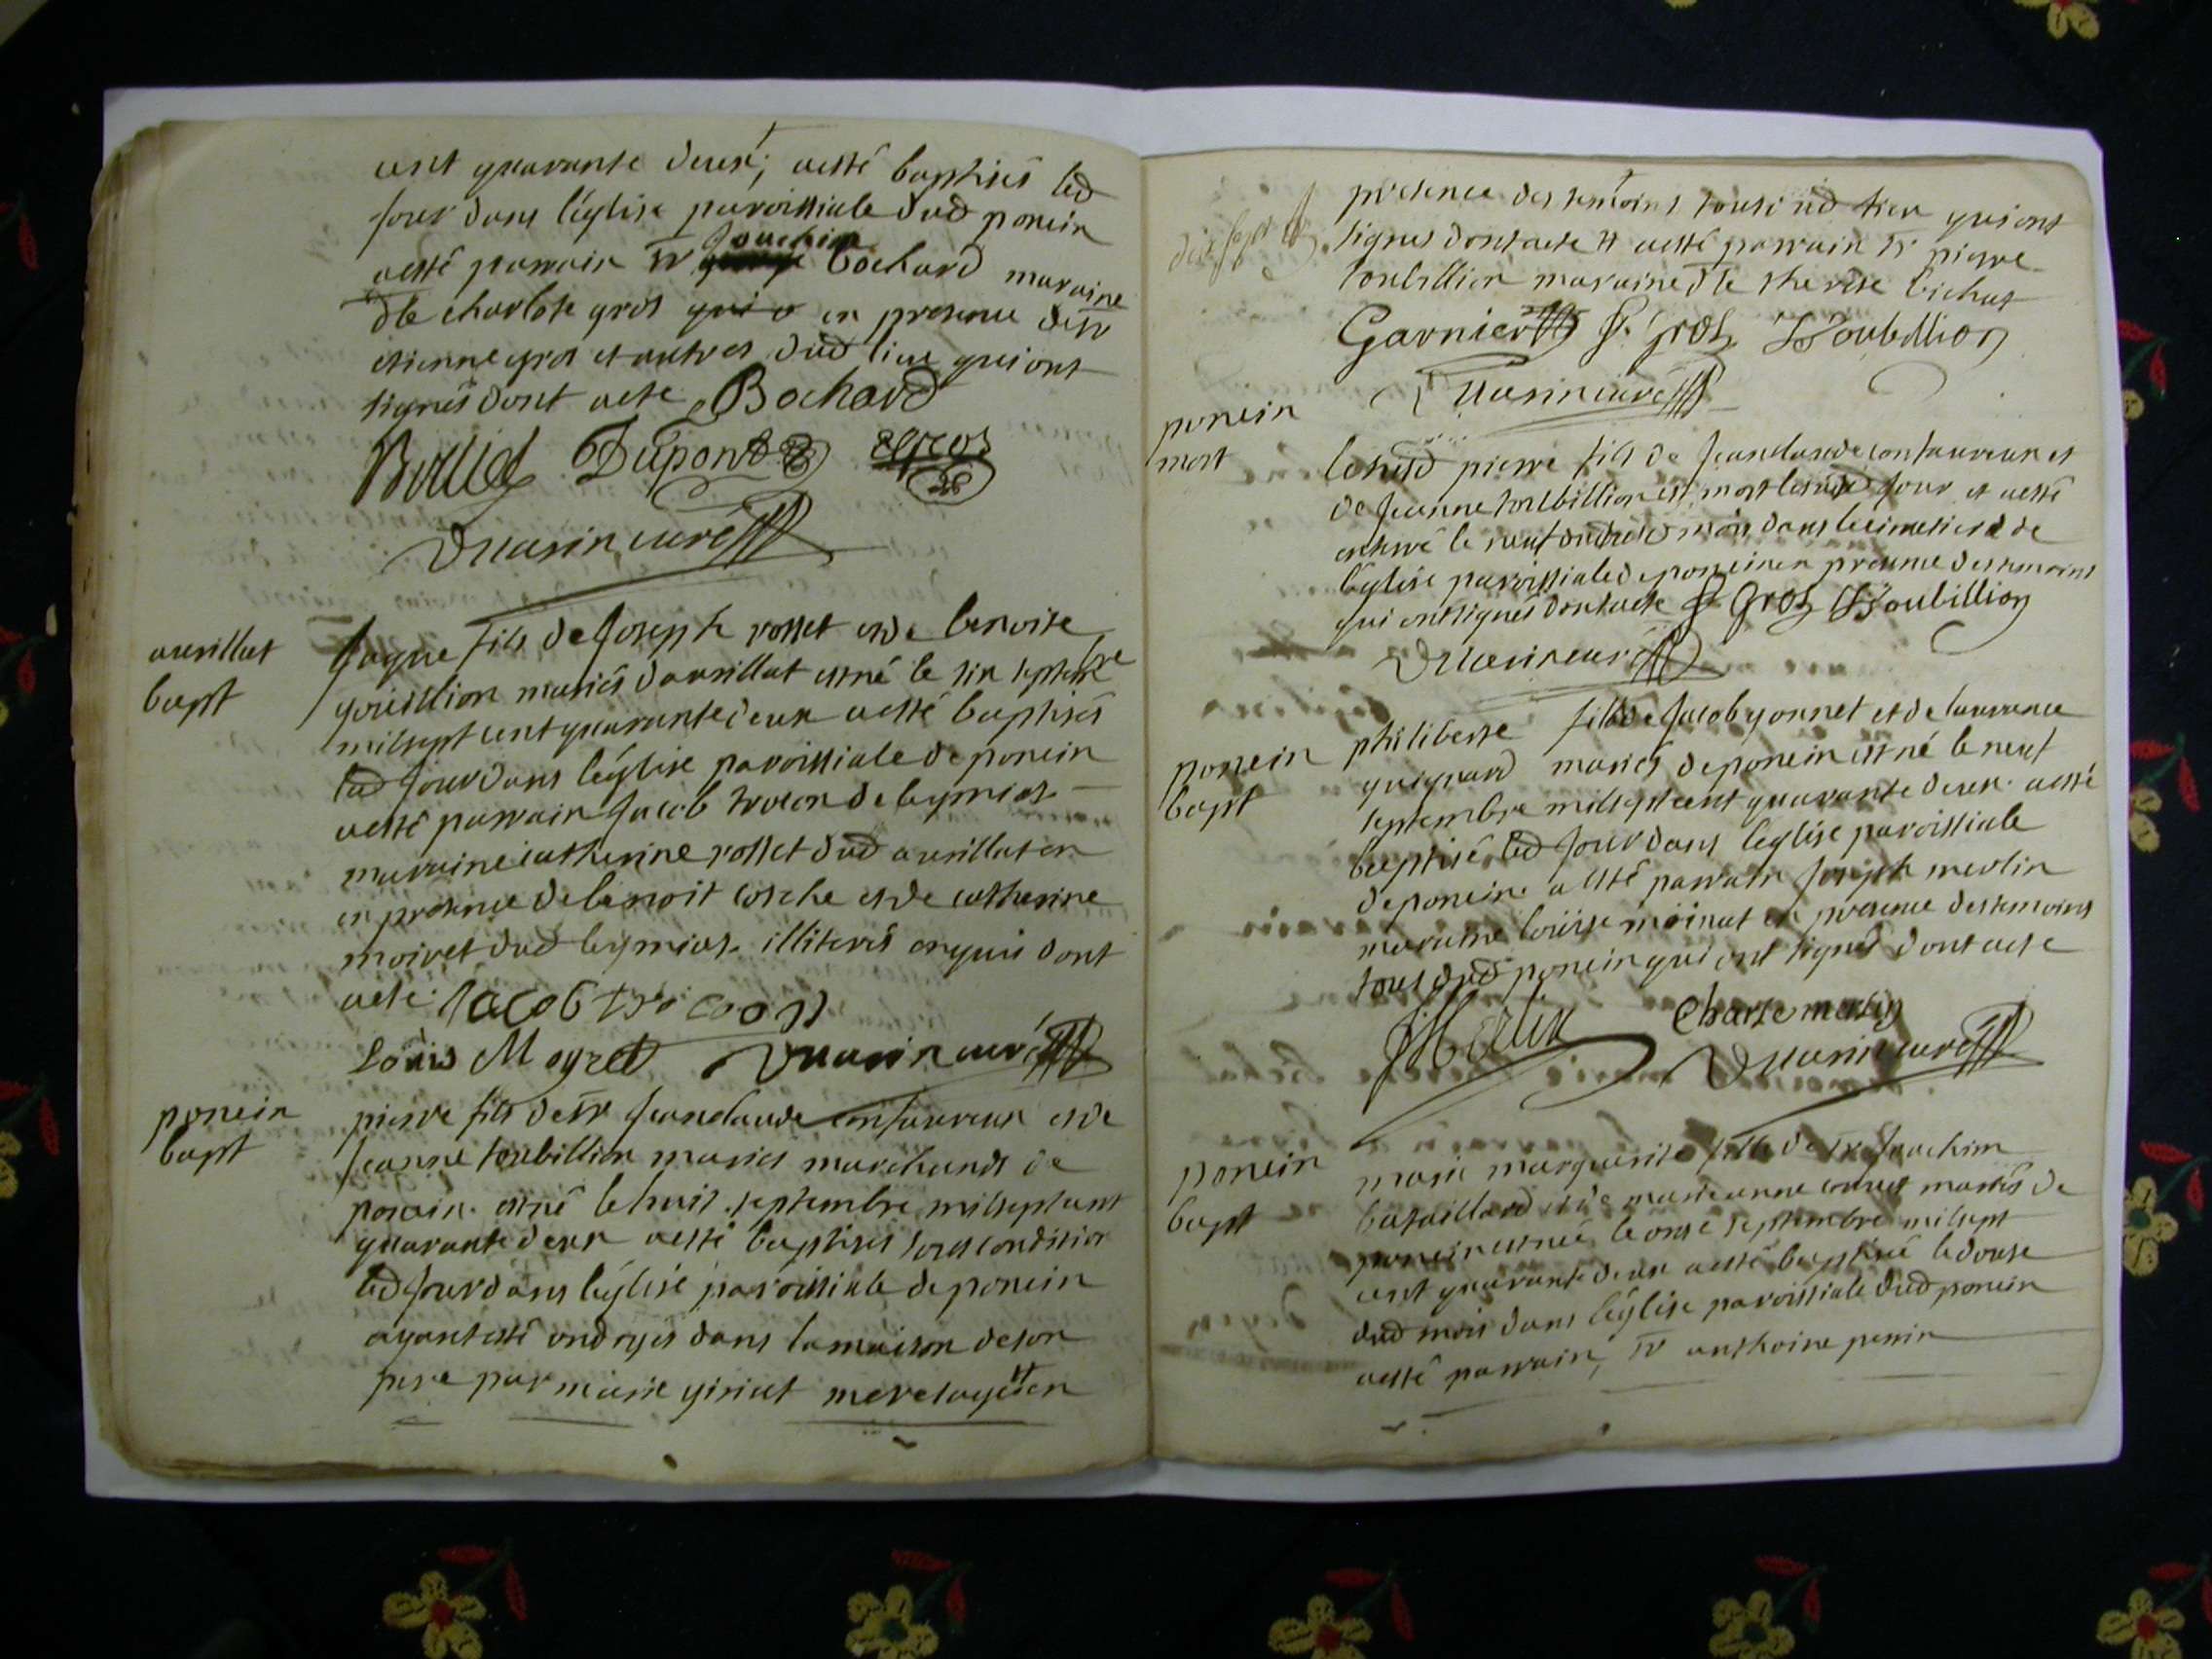 cent quarante deux; aesté baptisés led
jour dans léglise paroissiale dud poncin
aesté parrain sr Joachim bochard maraine
dlle charlote gros qui o en presence desr
etienne gros et autres dud lieu qui ont
signés dont acte Bochard
Dupont EGros
Duarin curé
avrillat
bapt
Jaque fils de Joseph rosset et de benoite
gouillion mariés davrillat est né le six septembre
milsept cent quarante deux aesté baptisés
led jour dans léglise paroissiale de poncin
aesté parrain Jacob trocon de leymiat
maraine catherine rosset dud avrillat en
en presence de benoit et de catherine
moiret dud leymiat illiterés enquis dont
acte Jacob trocoon
Louis Moyret Duarin curé
poncin
bapt
pierre fils de sr Jeanclaude confavreux et de
Jeanne toubillion mariés marchands de
poncin est né le huit septembre milseptcent
quarante deux aesté baptisés sous condition
led jour dans léglise paroissiale de poncin
ayant esté ondoyés dans la maison de son
pere par marie giriat mere sage en
presence des temoins tous dud lieu qui ont
signés dont acte aesté parrain sr pierre
toubillion maraine dlle therese bichat
Garnier P. Gros Toubillion
Duarin curé
poncin
mort
le susd pierre fils de Jeanclaude confavreux et
de Jeanne toubillion est mort le susd jour et aesté
enterré le neuf dudit mois dans le cimetiere de
léglise paroissiale de poncin en presence des temoins
qui ont signés dont acte P Gros Toubillion
Duarin curé
poncin
bapt
philiberte fille de Jacob yonnet et de laurence
guignard mariés de poncin est né le neuf
septembre milseptcent quarante deux aesté
baptisé led jour dans léglise paroissiale
de poncin aesté parrain Joseph merlin
maraine louise moinat en presence des temoins
tous dud poncin qui ont signés dont acte
Charle merlin
Duarin curé
poncin
bapt
marie marguerite fille de sr Joachim
bataillard et de marie anne mariés de
poncin est née le onze septembre milsept
cent quarante deux aesté baptisé le douse
dud mois dans léglise paroissiale dud poncin
aesté parrain, sr anthoine perrin